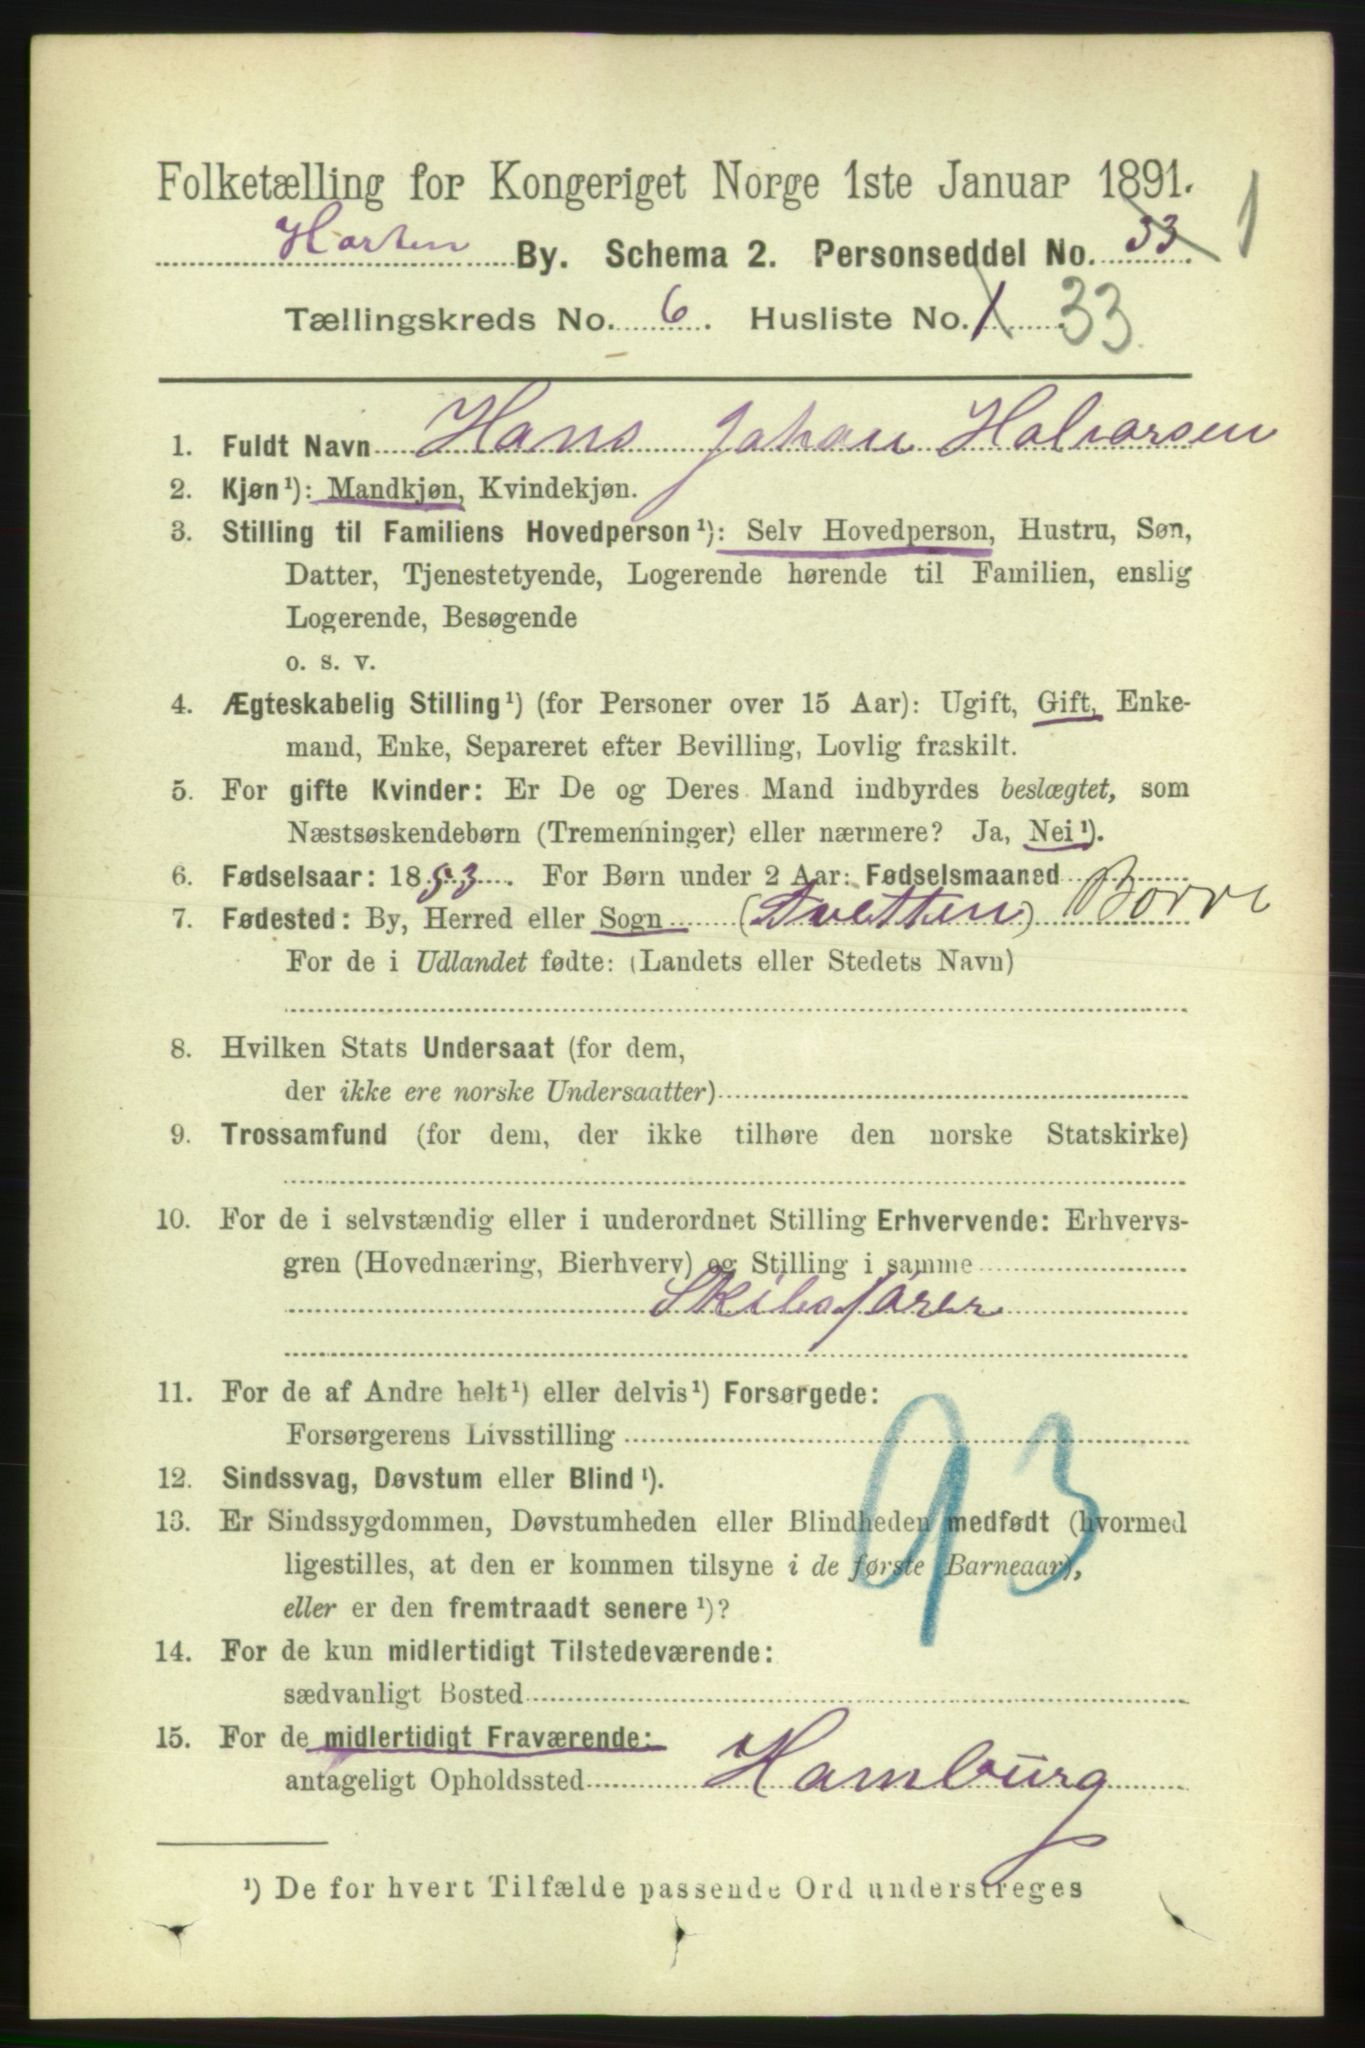 Folketælling for Kongeriget Norge 1ste Januar 1891.
Horten By. Schema 2. Personseddel No. 33 1
Tællingskreds No. 6. Husliste No. 1 33
1. Fuldt Navn Hans Johan Halvorsen
2. Kjøn¹): Mandkjøn, Kvindekjøn.
3. Stilling til Familiens Hovedperson¹): Selv Hovedperson, Hustru, Søn,
Datter, Tjenestetyende, Logerende hørende til Familien, enslig
Logerende, Besøgende
o. s. v.
4. Ægteskabelig Stilling¹) (for Personer over 15 Aar): Ugift, Gift, Enke-
mand, Enke, Separeret efter Bevilling, Lovlig fraskilt.
5. For gifte Kvinder: Er De og Deres Mand indbyrdes beslægtet, som
Næstsøskendebørn (Tremenninger) eller nærmere? Ja, Nei¹).
6. Fødselsaar: 1853. For Børn under 2 Aar: Fødselsmaaned
7. Fødested: By, Herred eller Sogn (Tvetten) Borre
For de i Udlandet fødte: (Landets eller Stedets Navn)
8. Hvilken Stats Undersaat (for dem,
der ikke ere norske Undersaatter)
9. Trossamfund (for dem, der ikke tilhøre den norske Statskirke)
10. For de i selvstændig eller i underordnet Stilling Erhvervende: Erhvervs-
gren (Hovednæring, Bierhverv) og Stilling i samme
Skibsfører
11. For de af Andre helt¹) eller delvis¹) Forsørgede:
Forsørgerens Livsstilling
93
12. Sindssvag, Døvstum eller Blind¹).
13. Er Sindssygdommen, Døvstumheden eller Blindheden medfødt (hvormed
ligestilles, at den er kommen tilsyne i de første Barneaar),
eller er den fremtraadt senere¹)?
14. For de kun midlertidigt Tilstedeværende:
sædvanligt Bosted
15. For de midlertidigt Fraværende:
antageligt Opholdssted Hamburg
¹) De for hvert Tilfælde passende Ord understreges